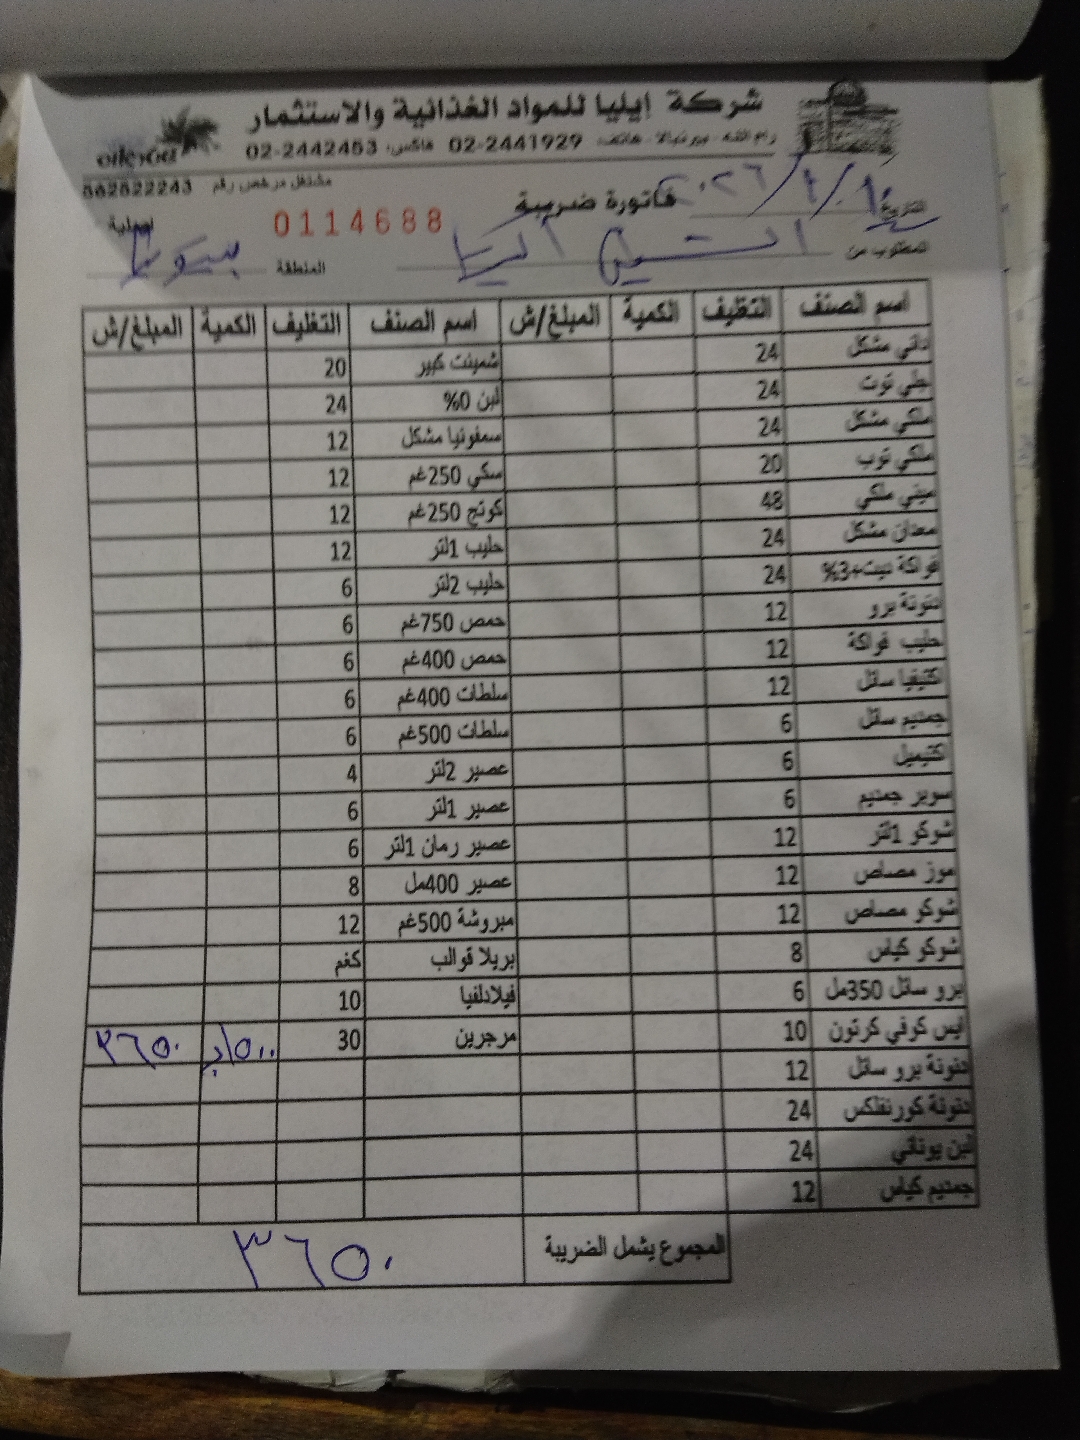 شركة إيليا للمواد الغذائية والاستثمار
رام الله بيرنبالا هاتف: 02-2441929 فاكس: 02-2442453
مشتغل مرخص رقم 562522243
التاريخ فاتورة ضريبة
0114688
المطلوب من المنطقة
اسم الصنف التغليف الكمية المبلغ/ش اسم الصنف التغليف الكمية المبلغ/ش
داني مشكل 24 شمينت كبير 20
جلي توت 24 لبن 0% 24
ملكي مشكل 24 سمفونيا مشكل 12
ملكي توب 20 سكي 250غم 12
ميني ملكي 48 كوتج 250غم 12
معدان مشكل 24 حليب 1لتر 12
فواكة ديت+3% 24 حليب 2لتر 6
دنونة برو 12 حمص 750غم 6
حليب فواكة 12 حمص 400غم 6
اكتيفيا سائل 12 سلطات 400غم 6
جمديم سائل 6 سلطات 500غم 6
اكتيميل 6 عصير 2لتر 4
سوبر جمديم 6 عصير 1لتر 6
شوكو 1لتر 12 عصير رمان 1لتر 6
موز مصاص 12 عصير 400مل 8
شوكو مصاص 12 مبروشة 500غم 12
شوكو كياس 8 بريلا قوالب كغم
برو سائل 350مل 6 فيلادلفيا 10
ايس كوفي كرتون 10 مرجرين 30 ٣٦٥٠
دنونة برو سائل 12
دنونة كورنفلكس 24
لبن يوناني 24
جمديم كياس 12
المجموع يشمل الضريبة ٣٦٥٠